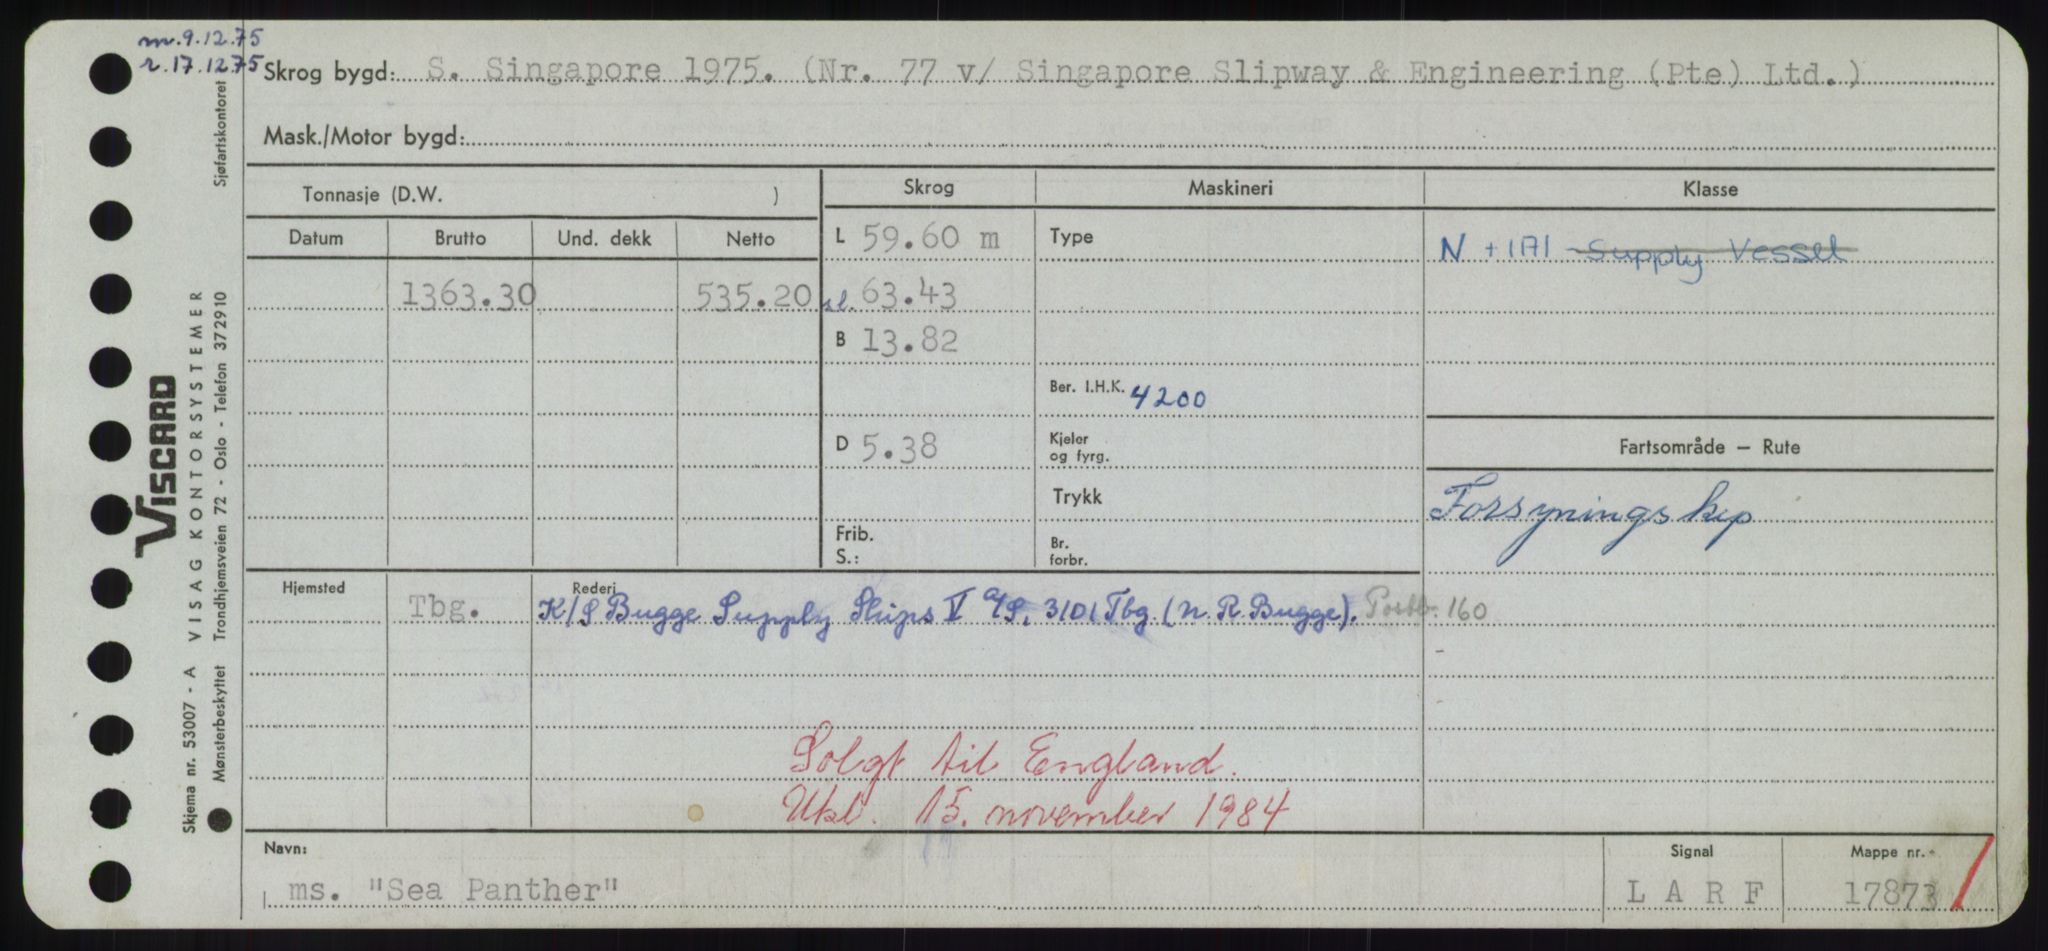 m. 9.12.75
r. 17.12.75
Skrog bygd: S. Singapore 1975. (Nr. 77 v/ Singapore Slipway & Engineering (Pte) Ltd.)
Mask./Motor bygd:
Tonnasje (D.W. ) Skrog Maskineri Klasse
Datum Brutto Und. dekk Netto L 59.60 m Type N + 1A1 Supply Vessel
1363.30 535.20 sl. 63.43
B 13.82
Ber. I.H.K. 4200
D 5.38 Kjeler og fyrg. Fartsområde — Rute
Trykk Forsyningskip
Frib. S.: Br. forbr.
Hjemsted Rederi
Tbg. K/S Bugge Supply Ships V A/S, 3101 Tbg. (N. R. Bugge). Postb. 160
Solgt til England.
Utkl. 15. november 1984
Navn: Signal Mappe nr.
ms. "Sea Panther" L A R F 17873
VISCARD
Skjema nr. 53007 - A VISAG KONTORSYSTEMER
Mønsterbeskyttet Trondhjemsveien 72 - Oslo - Telefon 372910 Sjøfartskontoret